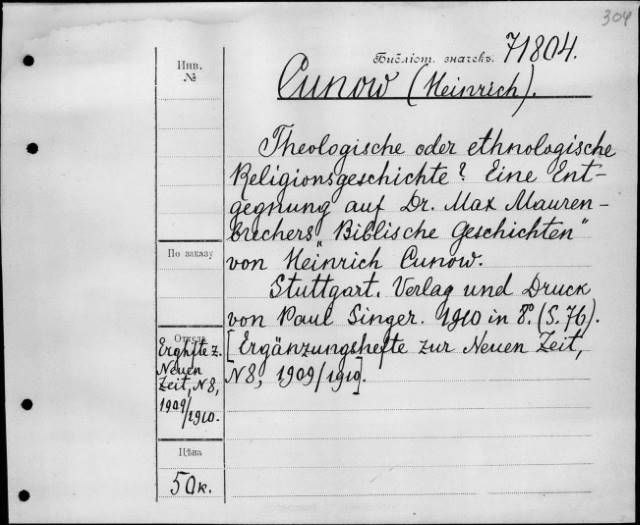 304
Библіот. значекъ. 71804.
Инв.
№
Cunow (Heinrich).
Theologische oder ethnologische
Religionsgeschichte? Eine Ent-
gegnung auf Dr. Max Mauren-
brechers „Biblische Geschichten"
von Heinrich Cunow.
Stuttgart. Verlag und Druck
von Paul Singer. 1910 in 8°. (S. 76).
[Ergänzungshefte zur Neuen Zeit,
N 8, 1909/1910].
По заказу
Откуда
Erghfte z.
Neuen
Zeit, N 8,
1909/
1910.
Цѣна
50 к.